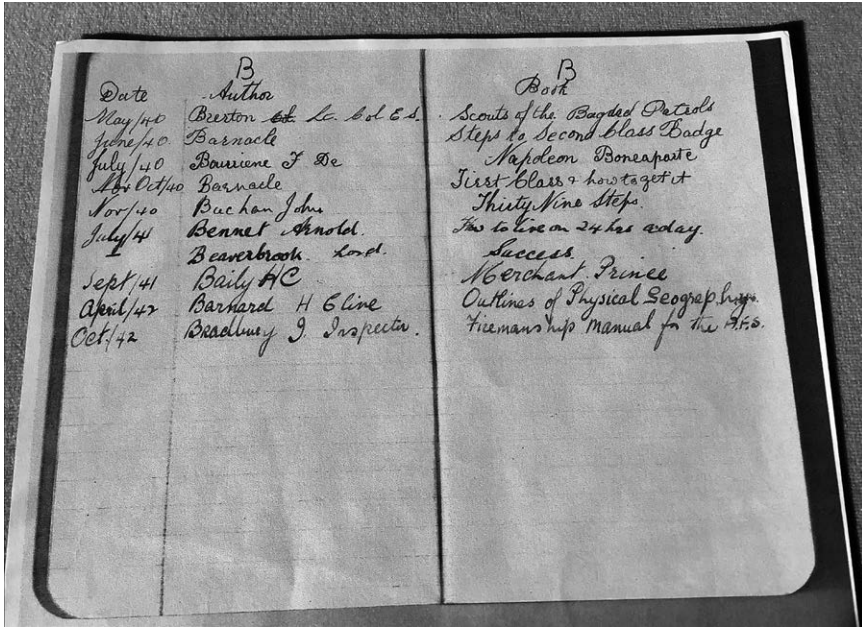 B B
Date Author Book
May/40 Brerton Lt. Col E S. Scouts of the Bagdad Patrols
June/40 Barnacle Steps to Second Class Badge
July/40 Bourriene F De Napoleon Boneaparte
Oct/40 Barnacle First Class & how to get it
Nov/40 Buchan John Thirty Nine Steps.
July/41 Bennet Arnold. How to live on 24 hrs a day.
Beaverbrook. Lord. Success.
Sept/41 Baily HC Merchant Prince
April/42 Barnard H Clive Outlines of Physical Geography.
Oct./42 Bradbury J. Inspector. Firemanship Manual for the A.F.S.